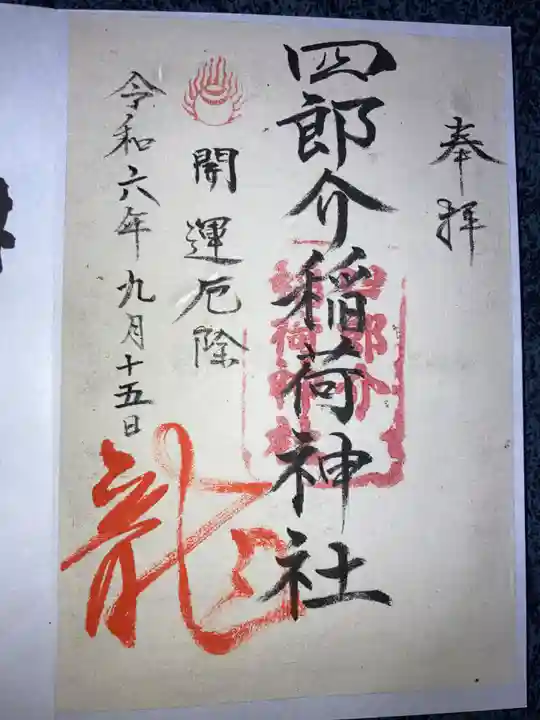 奉拝
四郎介稲荷神社
四郎介
稲荷神社
開運厄除
令和六年九月十五日
龍